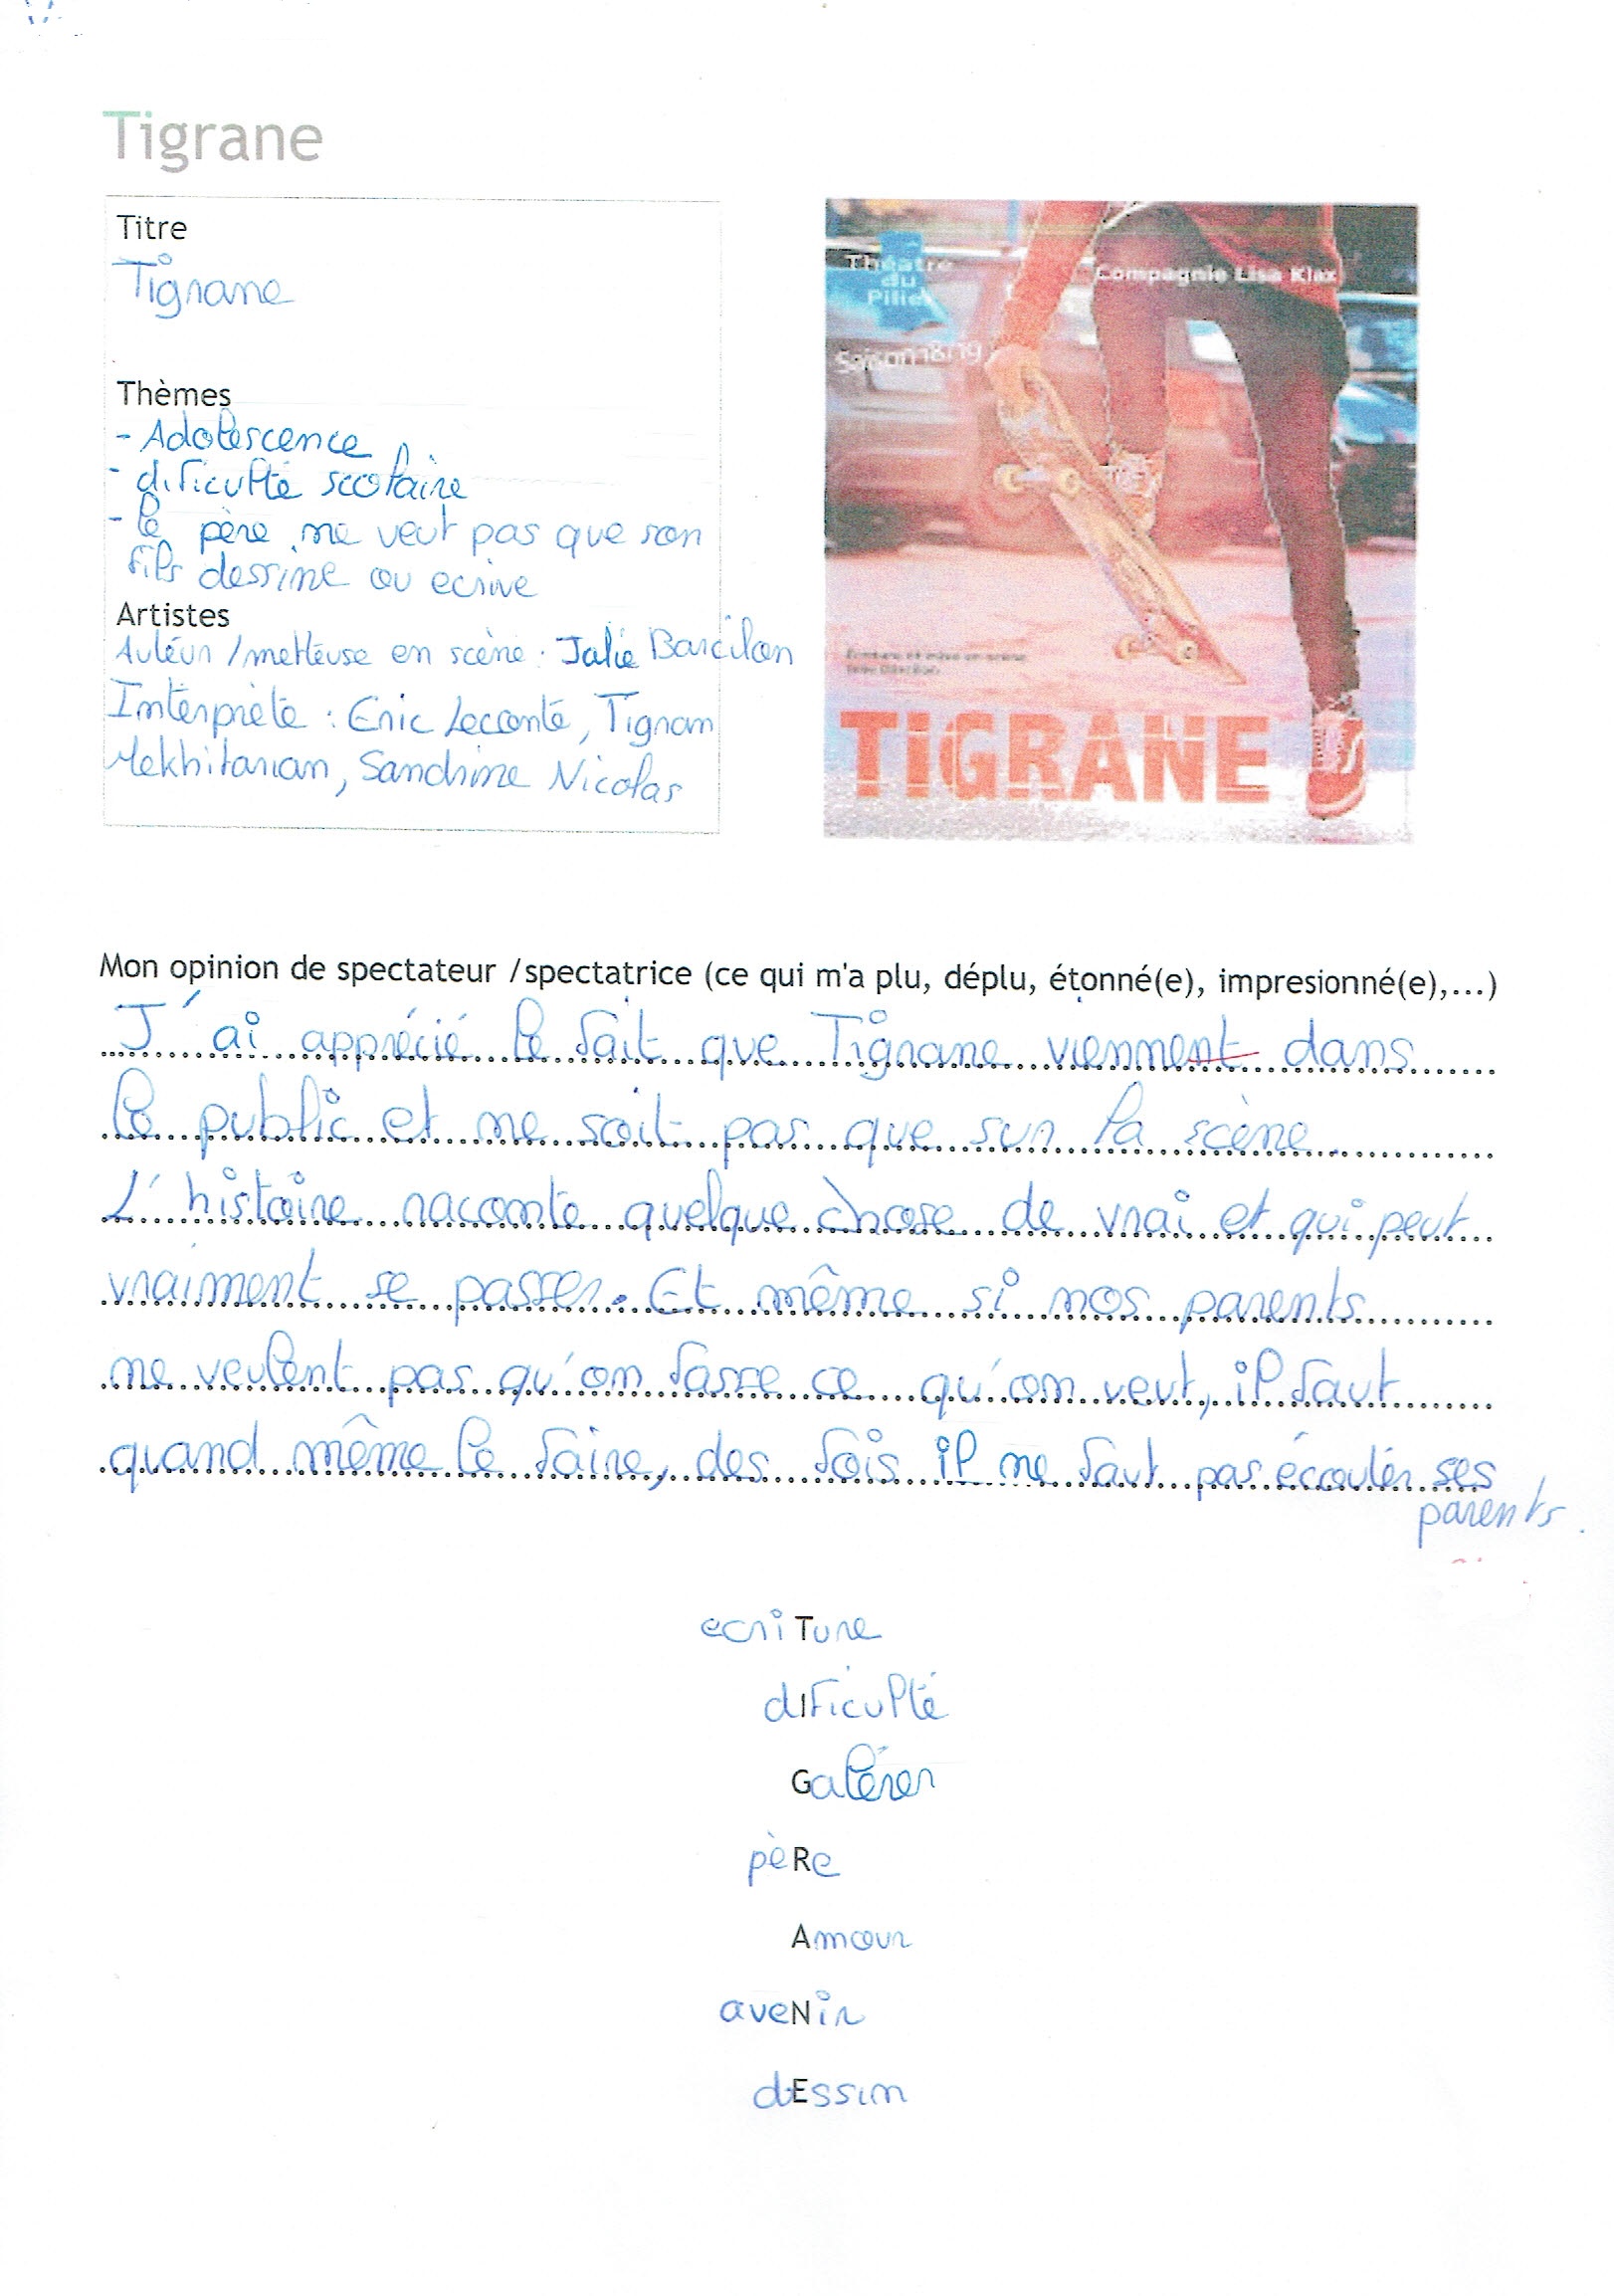 Tigrane
Titre
Tigrane
Thèmes
- Adolescence
- dificulté scolaire
- le père ne veut pas que son
fils dessine ou ecrive
Artistes
Autéur / metteuse en scène : Jalie Barcilon
Intérprète : Eric Leconte, Tigran
Mekhitarian, Sandrine Nicolas
Théatre
du
Pilier
Compagnie Lisa Klax
Saison 18/19
Ecriture et mise en scène
TIGRANE
Mon opinion de spectateur /spectatrice (ce qui m'a plu, déplu, étonné(e), impresionné(e),...)
J'ai apprécié le fait que Tigrane viennent dans
le public et ne soit pas que sur la scène.
L'histoire raconte quelque chose de vrai et qui peut
vraiment se passer. Et même si nos parents
ne veulent pas qu'on fasse ce qu'on veut, il faut
quand même le faire, des fois il ne faut pas écouter ses
parents.
ecriTure
dIficulté
Galérer
pèRe
Amour
aveNir
dEssin